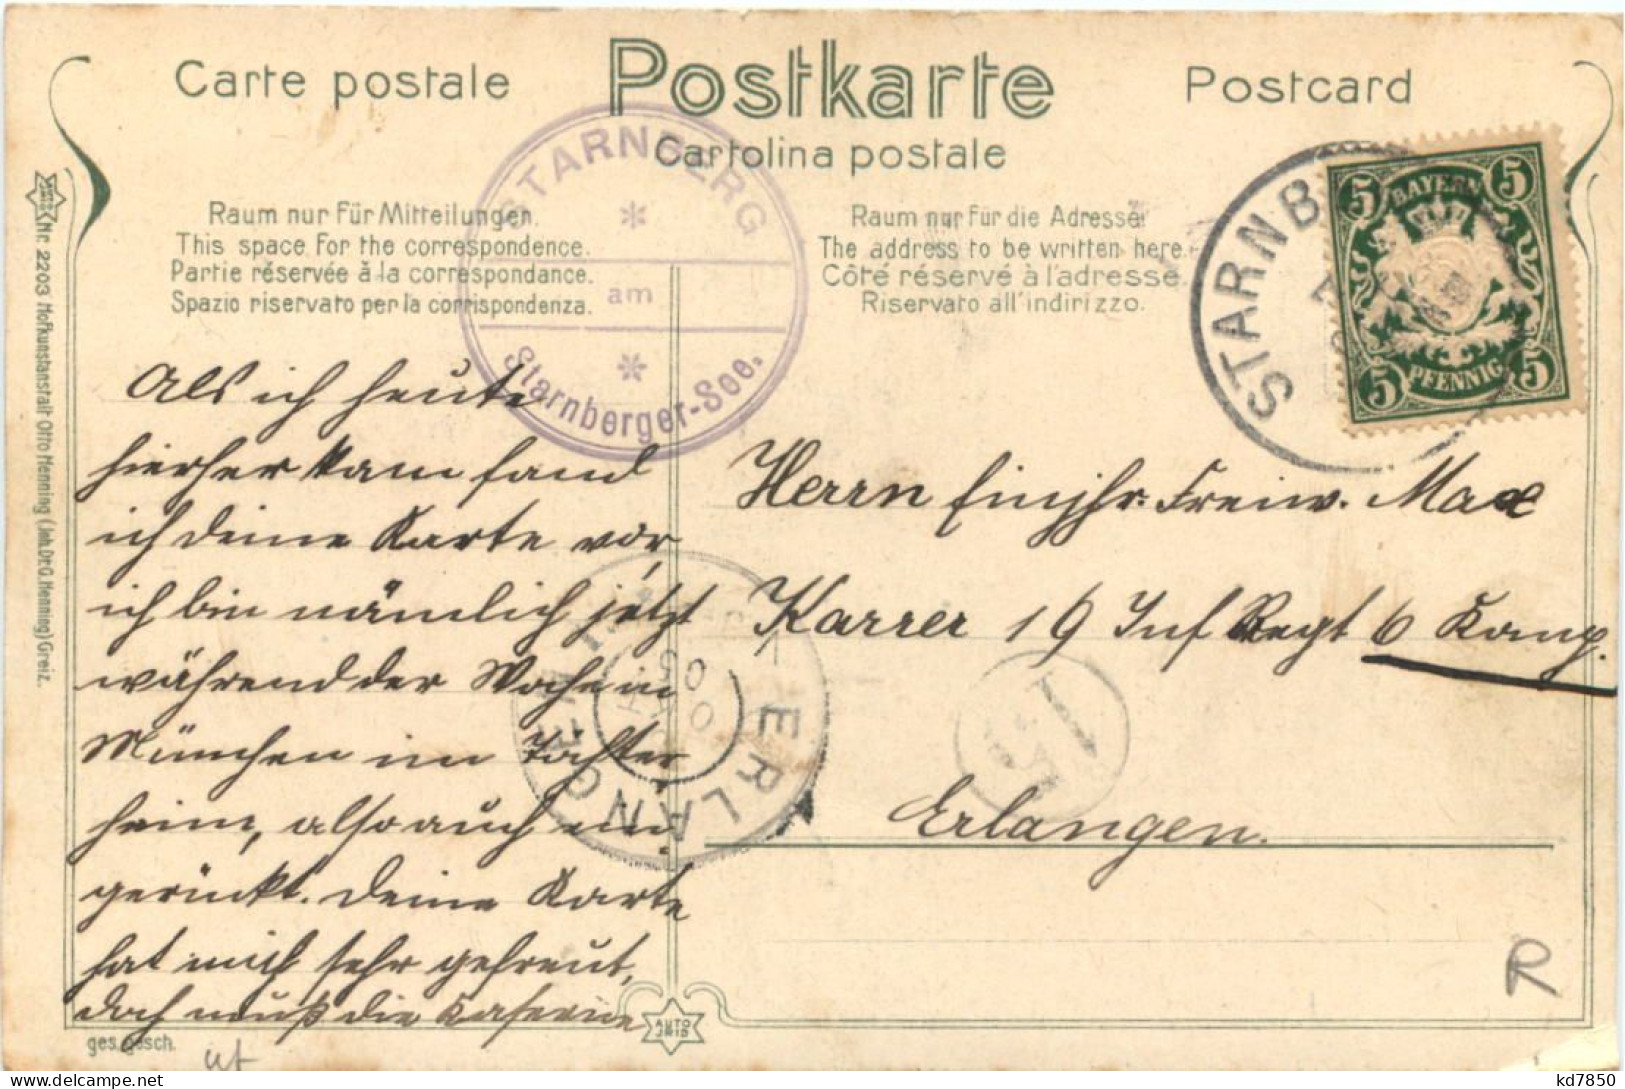 Carte postale
Postkarte
Postcard
Cartolina postale
Raum nur Für Mitteilungen.
This space For the correspondence.
Partie réservée à la correspondance.
Spazio riservato per la corrispondenza.
Raum nur für die Adresse.
The address to be written here.
Côté réservé à l'adresse
Riservato all'indirizzo.
STARNBERG
am
Starnberger-See.
STARNB
BAYERN
5 5
5 5
PFENNIG
Nr. 2203 Hofkunstanstalt Otto Henning (Inh. Dr. G. Henning) Greiz.
Als ich heute
hierher kam fand
ich deine Karte vor,
ich bin nämlich jetzt
während der Woche in
München im Töchter
heim, also auch ein
gerückt. Deine Karte
hat mich sehr gefreut,
doch muß die Kaserne
Herrn Einjhr. Freiw. Max
Karrer 19 Inf Regt 6 Komp.
Erlangen.
ERLANGEN
15
R
AUTO
ges. gesch.
kd7850